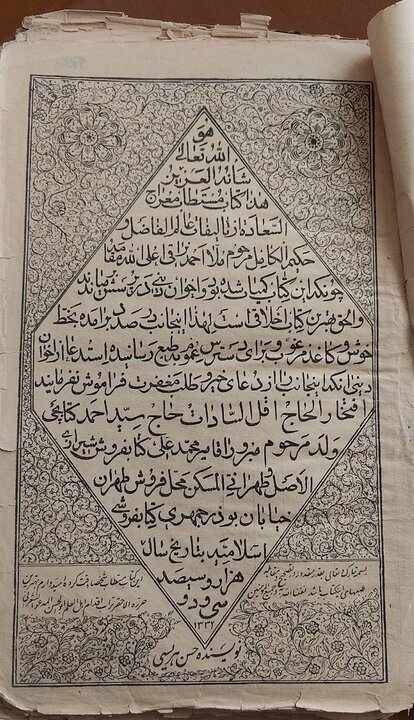 هو
الله تعالی
شأنه العزیز
هذا کتاب مستطاب معراج
السعادة از تالیفات عالم الفاضل و
حکیم الکامل مرحوم ملا احمد نراقی اعلی الله مقامه
چونکه این کتاب کمیاب شده بود و اخوان دینی در پرسش میباشند
و الحق بهترین کتاب اخلاق است لهذا اینجانب در صدد برآمده بخط
خوش و کاغذ مرغوب و برای دسترس عموم بطبع رسانیده استدعا از اخوان
دینی آنکه اینجانب را از دعای خیر و طلب مغفرت فراموش نفرمائید
افتخار الحاج اقل السادات حاج سید احمد کتابچی
ولد مرحوم میرزا آقا سید محمد علی کتابفروش شیرازی
الاصل و طهرانی المسکن محل فروش طهران
خیابان بوذرجمهری کتابفروشی
اسلامیه بتاریخ سال
هزار و سیصد
سی و دو
۱۳۳۲
بسم تبارک و تعالی بقدر مقدور در تصحیح و مقابله
این کتاب
نویسنده حسن هریسی